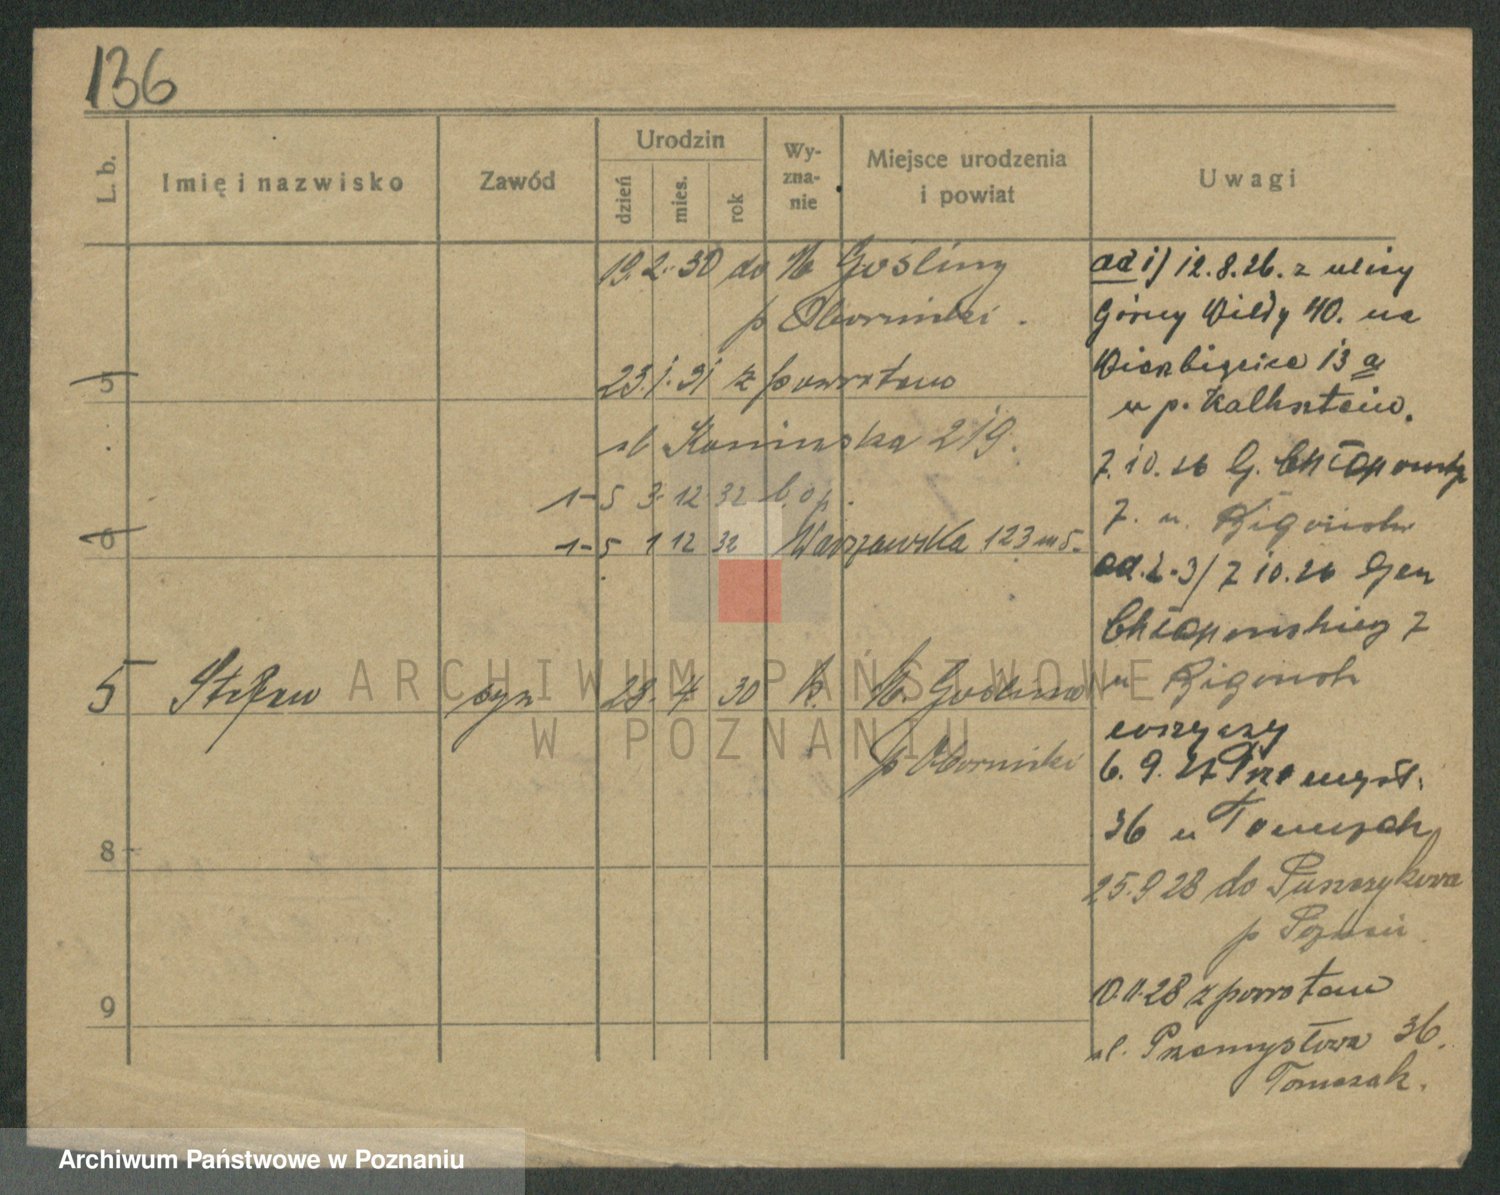 136
L. b.
Imię i nazwisko
Zawód
Urodzin
dzień
mies.
rok
Wy-
zna-
nie
Miejsce urodzenia
i powiat
Uwagi
19.2.30 do M Gośliny
p Oborniki.
5
23.1.31 z powrotem
ul Kaniewska 219.
1-5 3 12 32 b.op.
6
1-5 1 12 32 Warszawska 123 m 5.
5 Stefan syn 28. 4 30 k. M. Goślina
p Oborniki
8
9
ad 1) 12.8.26. z ulicy
Górny Wildy 40. na
13 a
u p. Kalkstein.
7.10.26 G. Chłapowsk
7. u.
ad. 2-3) 7 10.26 Gen
Chłapowskiego 7
u
wszyscy
6. 9. 27 Przemysł.
36 u Tomczak
25.9 28 do Puszczykowa
p Poznań
10.11.28 z powrotem
ul. Przemysłowa 36.
Tomczak.
ARCHIWUM PAŃSTWOWE
W POZNANIU
Archiwum Państwowe w Poznaniu